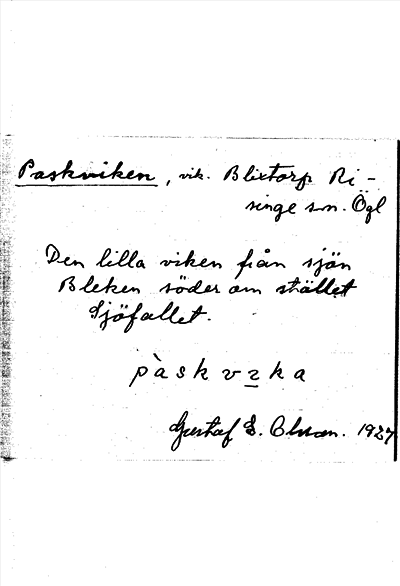 Paskviken, vik. Blixtorp Ri-
singe sn. Ögl
Den lilla viken från sjön
Bleken söder om stället
Sjöfallet.
pàskvɩka
Gustaf E. 1927